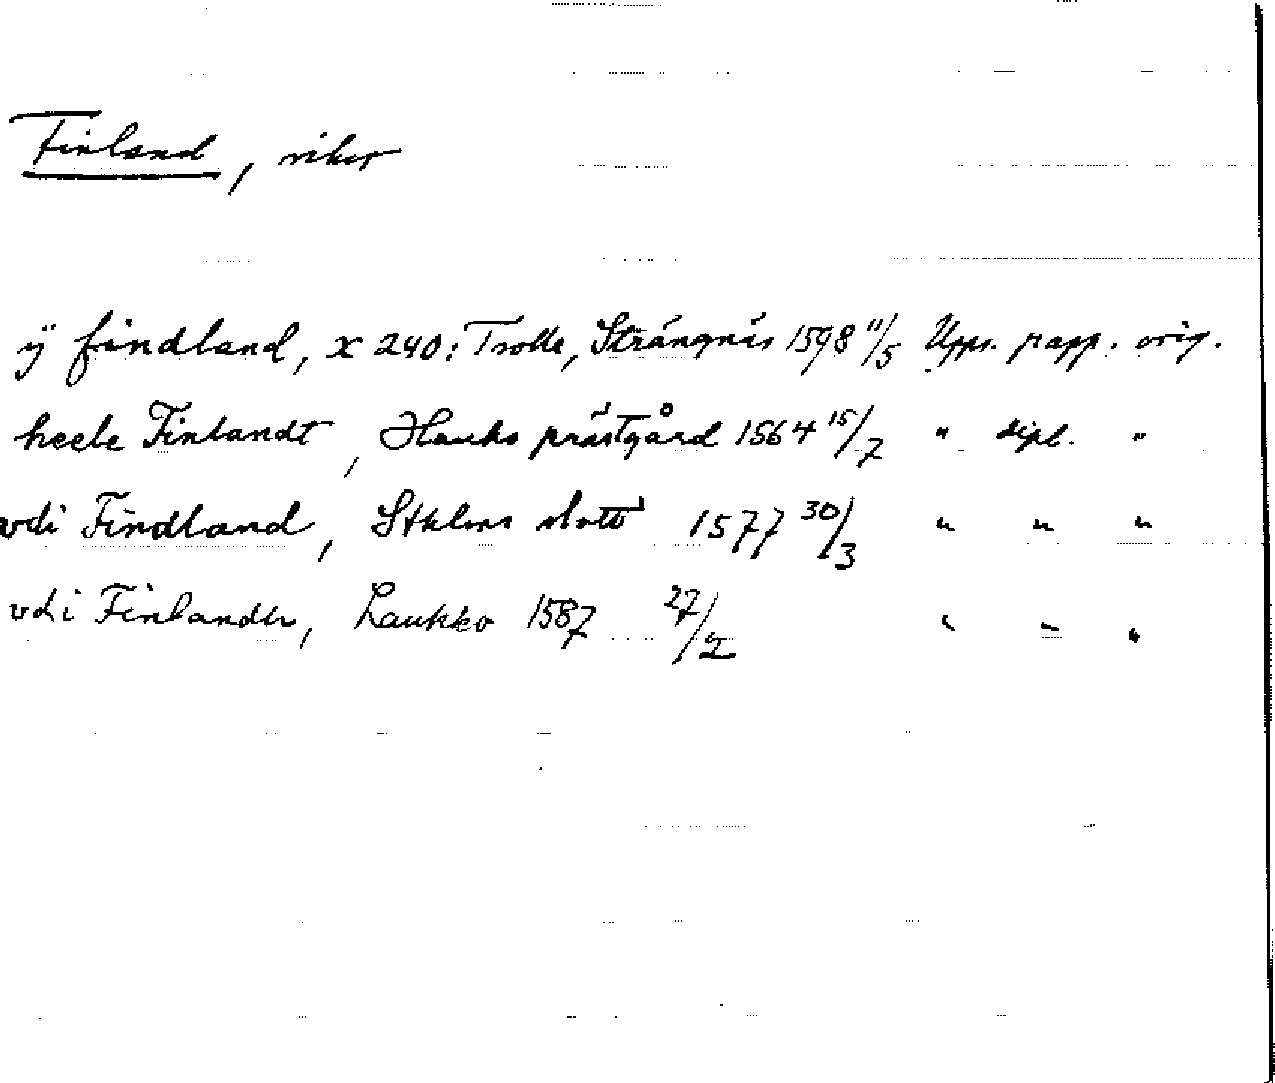 Finland, riket
ij findland, x 240: Trolle, Strängnäs 1598 11/5 Upps. papp. orig.
heele Finlandt, Hauho prästgård 1564 15/7 " dipl. "
vdi Findland, Sthlms slott 1577 30/3 " " "
vdi Finlandh, Laukko 1587 27/2 " " "